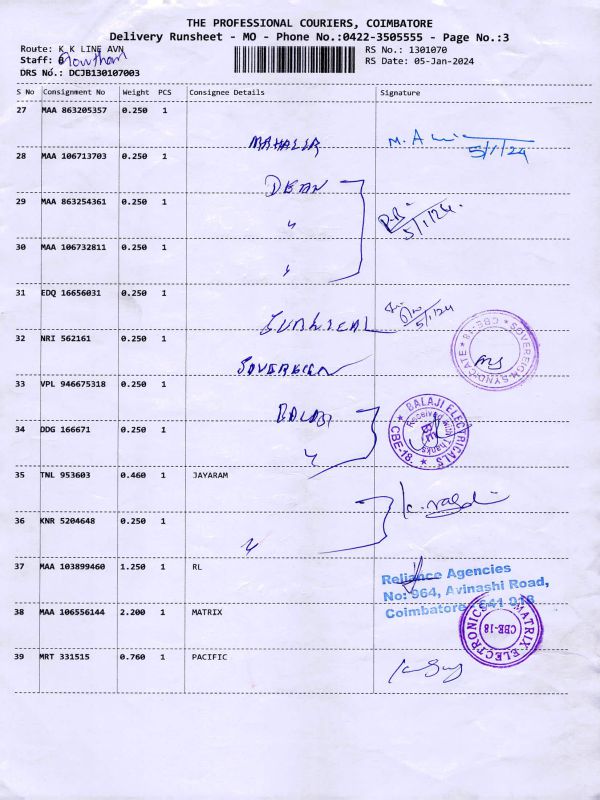 THE PROFESSIONAL COURIERS, COIMBATORE
Delivery Runsheet - MO - Phone No.:0422-3505555 - Page No.:3
Route: K K LINE AVN RS No.: 1301070
Staff: Gowtham RS Date: 05-Jan-2024
DRS No.: DCJB130107003
S No Consignment No Weight PCS Consignee Details Signature
27 MAA 863205357 0.250 1
MAHAEER M. A 5/1/24
28 MAA 106713703 0.250 1
DEAN
29 MAA 863254361 0.250 1
〃 5/1/24.
30 MAA 106732811 0.250 1
〃
31 EDQ 16656031 0.250 1
SURGICAL 5/1/24
32 NRI 562161 0.250 1
SOVEREIGN SOVEREIGN SYNDICATE CBE-18
33 VPL 946675318 0.250 1
BALAJI BALAJI ELECTRICALS CBE-18.
Received with Thanks
34 DDG 166671 0.250 1
〃
35 TNL 953603 0.460 1 JAYARAM
36 KNR 5204648 0.250 1
〃
37 MAA 103899460 1.250 1 RL
Reliance Agencies
No: 964, Avinashi Road,
Coimbatore - 641 018
38 MAA 106556144 2.200 1 MATRIX
MATRIX ELECTRONICS
CBE-18
39 MRT 331515 0.760 1 PACIFIC